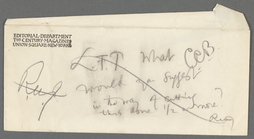 EDITORIAL DEPARTMENT
THE CENTURY MAGAZINE
UNION SQUARE NEW YORK
What CCB
would you suggest
in the way of cutting
this down? 1/2 or more?